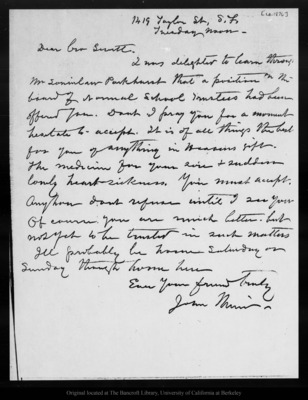 1419 Taylor St, S.F.
Tuesday noon
Dear Bro
I was delighted to learn through
Mr Parkhurst that a position in the
board of Normal School trustees had been
offered you. Dont I pray you for a moment
hesitate to accept. It is of all things the best
for you of anything in gift.
The medicine for your sudden
lonely heart sickness. You must accept.
Anyhow dont refuse until I see you
Of course you are much better but
not yet to be trusted in such matters
Ill probably be home Saturday or
Sunday
Ever your friend truly
John Muir
Original located at The Bancroft Library, University of California at Berkeley